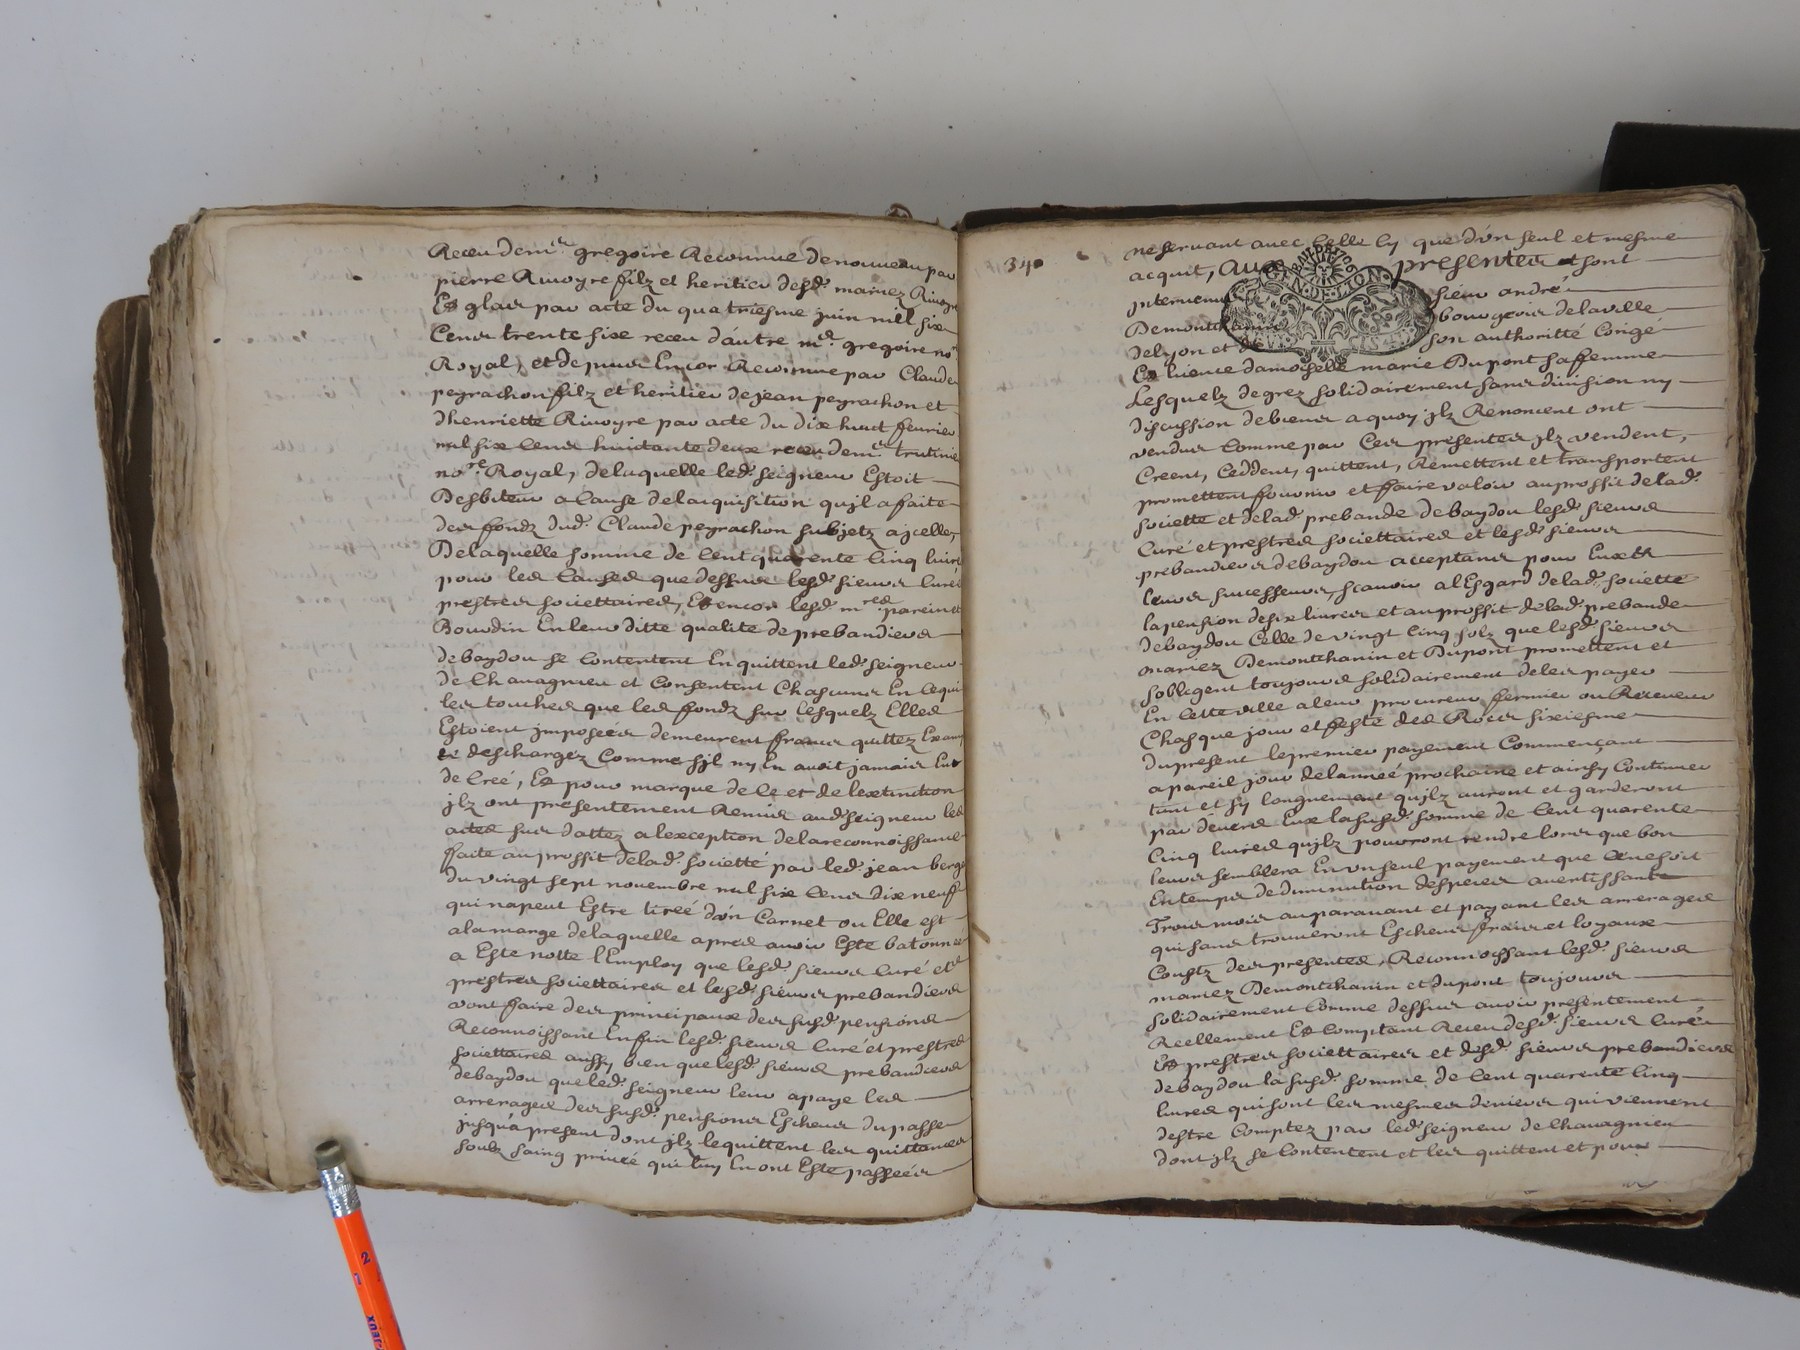 Receu de m.re gregoire Reconnue de nouveau par
pierre Rivoyre filz et heritier desd. mariez Rivoyre
Et glas par acte du quatriesme juin mil six
Cens trente six receu d'autre m.e gregoire no.re
Royal, et depuis Encor Reconnue par Claude
peyrachon filz et heritier de jean peyrachon et
d'henriette Rivoyre par acte du dix huict febvrier
mil six Cens huictante deux receu de m.e
no.re Royal, de laquelle led. seigneur Estoit
Desbiteur a Cause de lacquisition quil a faite
des fondz dud. Claude peyrachon subjetz a jcelle,
De laquelle somme de Cent quarente Cinq livres
pour les Causes que dessus lesd. sieurs Curé
prestres societtaires, Et encor lesd. m.res pareins et
Bourdin En leur ditte qualité de prebandiers
de baydou se Contentent En quittent led. seigneur
de Chavagnieu et Consentent Chascuns En Ce qui
les touches que les fondz sur lesquelz Elles
Estoient jmposées demeurent francs quittez Exemp
et deschargez Comme sjl ny En avoit jamais Eut
de Creé, Et pour marque de Ce et de lextinction
jlz ont presentement Remis aud. seigneur les
actes sus dattez a lexception de la reconnoissance
faite au proffit de lad. societté par led. jean berge
du vingt sept novembre mil six Cens dix neuff
qui na peut Estre tireé d'un Carnet ou Elle est
a la marge de laquelle apres avoir Esté batonneé
a Esté notté l'Employ que lesd. sieurs Curé et
prestres societtaires et lesd. sieurs prebandiers
vont faire des principaux des susd. pensions
Reconnoissant Enfin lesd. sieurs Curé et prestres
societtaires aussy bien que lesd. sieurs prebandiers
de baydou que led. seigneur leur a paye les
arrerages des susd. pensions Escheus du passe
jusqu'a present dont jlz le quittent les quittances
soubz saing privé qui luy En ont Esté passeés
340
ne servant avec Celle cy que d'un seul et mesme
acquit, Aux presentes sont
jntervenus sieur andré
Demontchanin bourgeois de la ville
de lyon et de son authoritté Congé
Et licence damoiselle marie Dupont sa femme
Lesquelz de grez solidairement sans division ny
discussion de biens a quoy jlz Renoncent ont
vendus Comme par Ces presentes jlz vendent,
Creent, Ceddent, quittent, Remettent et transportent
promettent fournir et faire valoir au proffit de lad.
societté et de lad. prebande de baydou lesd. sieurs
Curé et prestres societtaires et lesd. sieurs
prebandiers de baydou acceptans pour Eux et
leurs successeurs, scavoir a l'Esgard de lad. societté
la pension de six livres et au proffit de lad. prebande
de baydou Celle de vingt Cinq solz que lesd. sieurs
mariez Demontchanin et Dupont promettent et
sobligent toujours solidairement de les payer
En Cette ville a leur procureur fermier ou Receveur
Chasque jour et feste des Rois sixiesme
du present le premier payement Commençant
a pareil jour de l'anneé prochaine et ainsy Continuer
tant et sy longuement qujlz auront et garderont
par devers Eux la susd. somme de Cent quarente
Cinq livres qujlz pourront rendre lors que bon
leurs semblera En un seul payement que Ce ne soit
En temps de diminution despeces avertissant
Trois mois auparavant et payant les arrerages
qui sans trouveront Escheus frais et loyaux
Coustz des presentes, Reconnoissant lesd. sieurs
mariez Demontchanin et dupont toujours
solidairement Comme dessus avoir presentement
Reellement Et Comptant Receu desd. sieurs Curés
Et prestres societtaires et desd. sieurs prebandiers
de baydou la susd. somme de Cent quarente Cinq
livres qui sont les mesmes deniers qui viennent
destre Comptez par led. seigneur de Chavagnieu
dont jlz se Contentent et les quittent et pour